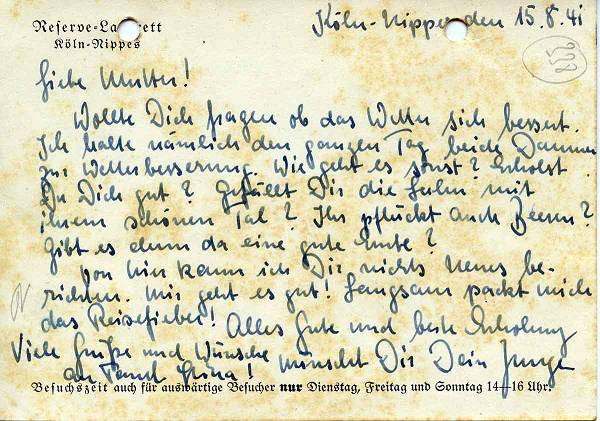 Reserve-Lazarett
Köln-Nippes
Köln-Nippes den 15.8.41
Liebe Mutter!
Wollte Dich fragen ob das Wetter sich bessert.
Ich halte nämlich den ganzen Tag beide Daumen
zur Wetterbesserung. Wie geht es sonst? Erholst
Du Dich gut? Gefällt Dir die Lahn mit
ihrem schönen Tal? Ihr pflückt auch Beeren?
Gibt es denn da eine gute Ernte?
Von hier kann ich Dir nichts Neues be-
richten. Mir geht es gut! Langsam packt mich
das Reisefieber! Alles Gute und beste Erholung
Viele Grüße und Wünsche wünscht Dir Dein Junge
an Tante!
Besuchszeit auch für auswärtige Besucher nur Dienstag, Freitag und Sonntag 14—16 Uhr.